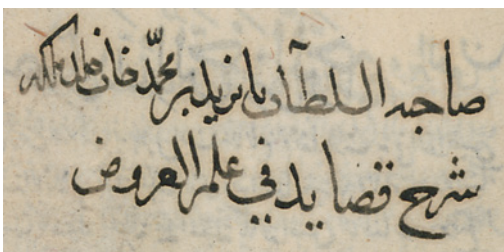 صاحبه السلطان بايزيد بن محمد خان خلد ملكه
شرح قصايد في علم العروض